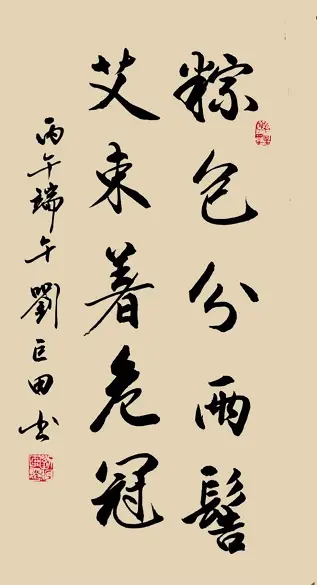 粽包分兩髻
艾束著危冠
丙午端午劉巨田书